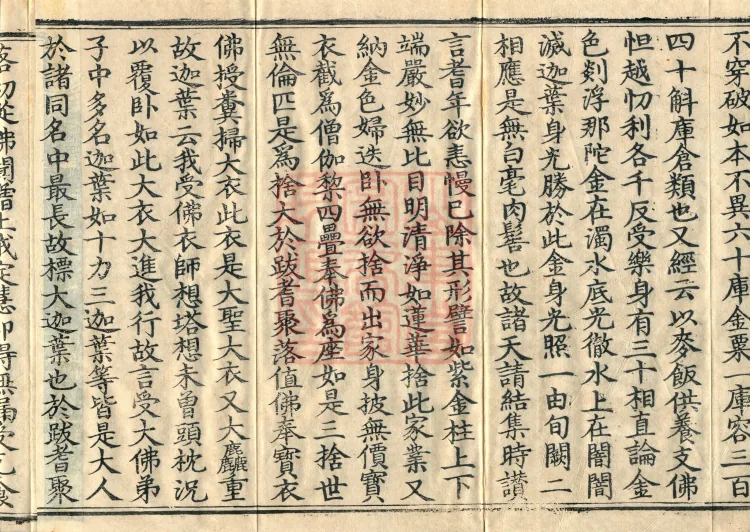 不穿破如本不異六十庫金粟一庫容三百
四十斛庫倉類也又經云以麥飯供養支佛
恒越忉利各千反受樂身有三十相直論金
色剡浮那陀金在濁水底光徹水上在闇闇
滅迦葉身光勝於此金身光照一由旬闕二
相應是無白毫肉髻也故諸天請結集時讃
言耆年欲恚慢已除其形譬如紫金柱上下
端嚴妙無比目明清淨如蓮華捨此家業又
納金色婦迭卧無欲捨而出家身披無價寶
衣截爲僧伽黎四疊奉佛爲座如是三捨世
無倫匹是爲捨大於跋耆聚落值佛奉寶衣
佛授糞掃大衣此衣是大聖大衣又大麤重
故迦葉云我受佛衣師想塔想未曾頭枕況
以覆卧如此大衣大進我行故言受大佛弟
子中多名迦葉如十力三迦葉等皆是大人
於諸同名中最長故標大迦葉也於跋耆聚
落初從佛聞增上戒定慧即得無漏